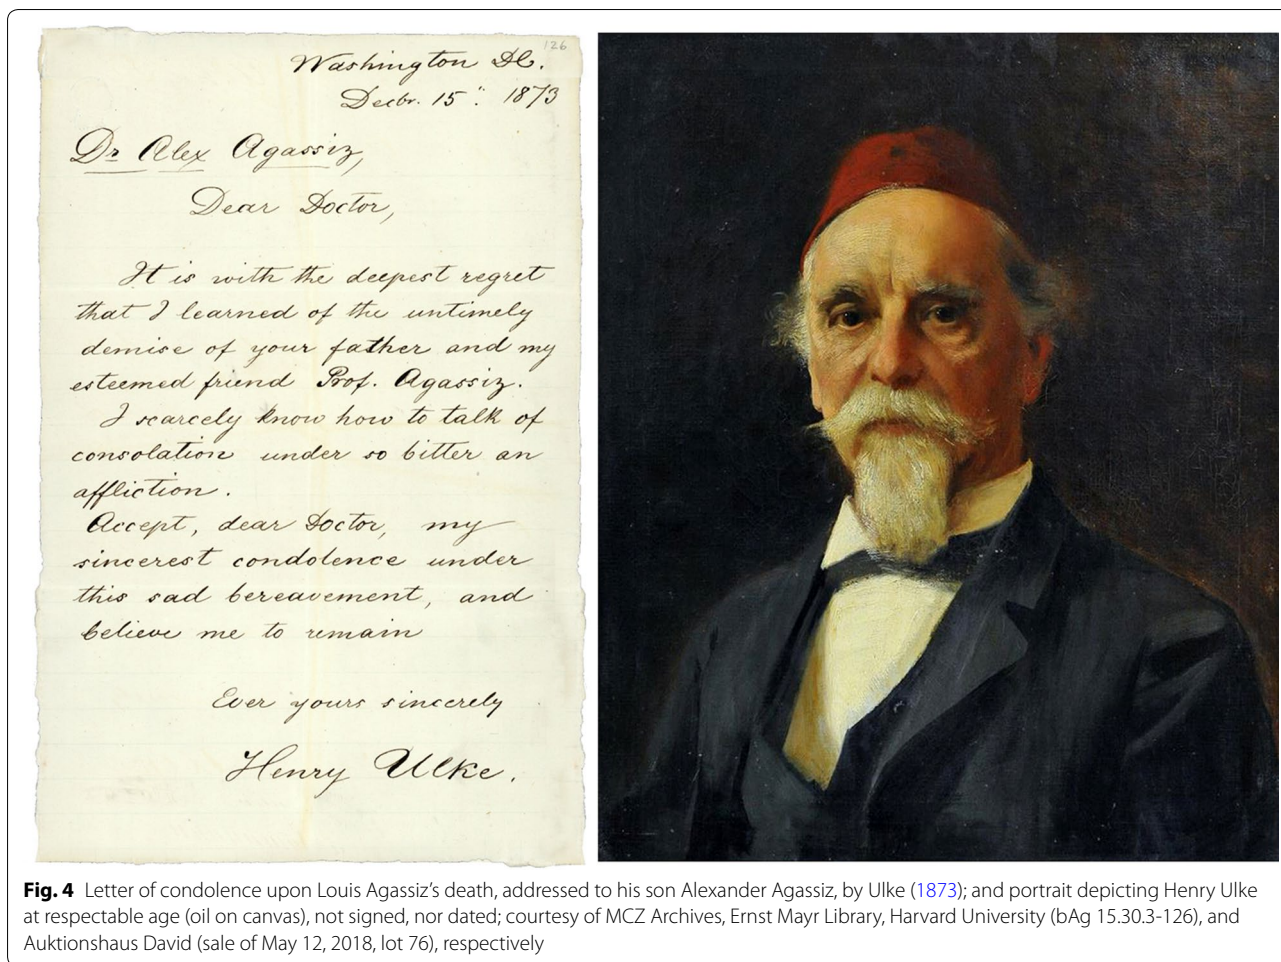 126
Washington DC.
Decbr. 15". 1873
Dr Alex Agassiz,
Dear Doctor,
It is with the deepest regret
that I learned of the untimely
demise of your father and my
esteemed friend Prof. Agassiz.
I scarcely know how to talk of
consolation under so bitter an
affliction.
Accept, dear Doctor, my
sincerest condolence under
this sad bereavement, and
believe me to remain
Ever yours sincerely
Henry Ulke.
Fig. 4 Letter of condolence upon Louis Agassiz's death, addressed to his son Alexander Agassiz, by Ulke (1873); and portrait depicting Henry Ulke
at respectable age (oil on canvas), not signed, nor dated; courtesy of MCZ Archives, Ernst Mayr Library, Harvard University (bAg 15.30.3-126), and
Auktionshaus David (sale of May 12, 2018, lot 76), respectively